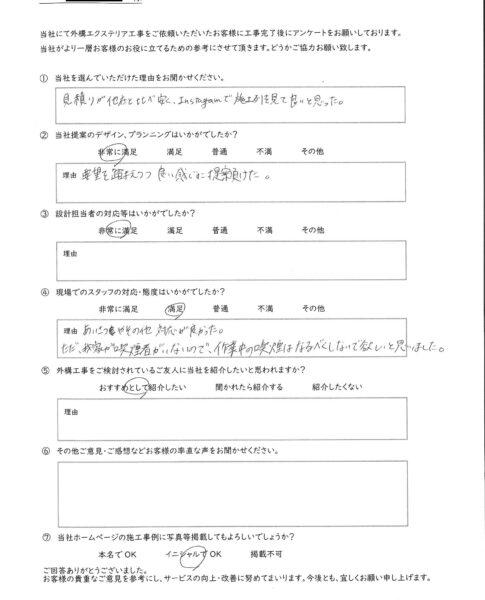 当社にて外構エクステリア工事をご依頼いただいたお客様に工事完了後にアンケートをお願いしております。
当社がより一層お客様のお役に立てるための参考にさせて頂きます。どうかご協力お願い致します。
① 当社を選んでいただけた理由をお聞かせください。
見積りが他社と比べ安く、Instagramで施工例を見て良いと思った。
② 当社提案のデザイン、プランニングはいかがでしたか？
非常に満足 満足 普通 不満 その他
理由 要望を踏まえつつ 良い感じに提案頂けた。
③ 設計担当者の対応等はいかがでしたか？
非常に満足 満足 普通 不満 その他
理由
④ 現場でのスタッフの対応・態度はいかがでしたか？
非常に満足 満足 普通 不満 その他
理由 あいさつやその他 対応が良かった。
ただ、我家が喫煙者がいないので、作業中の喫煙はなるべくしないで欲しいと思いました。
⑤ 外構工事をご検討されているご友人に当社を紹介したいと思われますか？
おすすめとして紹介したい 聞かれたら紹介する 紹介したくない
理由
⑥ その他ご意見・ご感想などお客様の率直な声をお聞かせください。
⑦ 当社ホームページの施工事例に写真等掲載してもよろしいでしょうか？
本名でOK イニシャルでOK 掲載不可
ご回答ありがとうございました。
お客様の貴重なご意見を参考にし、サービスの向上・改善に努めてまいります。今後とも、宜しくお願い申し上げます。